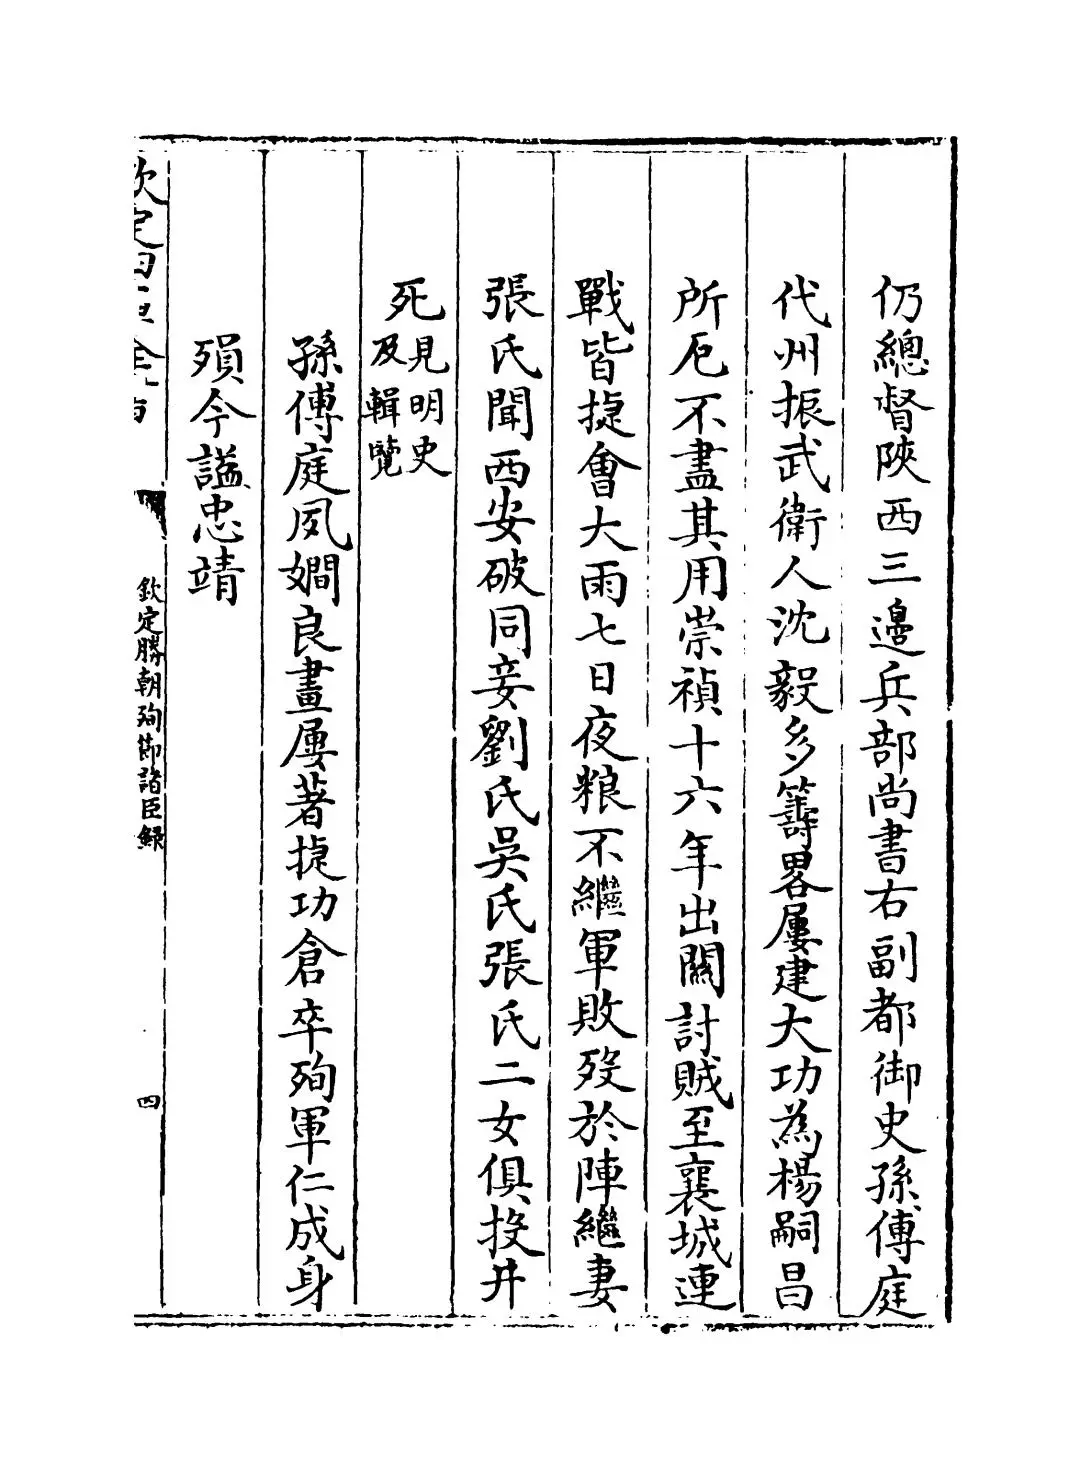 仍總督陜西三邊兵部尚書右副都御史孫傅庭
代州振武衛人沈毅多籌畧屢建大功為楊嗣昌
所厄不盡其用崇禎十六年出關討賊至襄城連
戰皆捷會大雨七日夜粮不繼軍敗歿於陣繼妻
張氏聞西安破同妾劉氏吳氏張氏二女俱投井
死見明史
及輯覽
孫傅庭夙嫺良畫屢著捷功倉卒殉軍仁成身
殞今諡忠靖
欽定四庫全書
欽定勝朝殉節諸臣錄
四